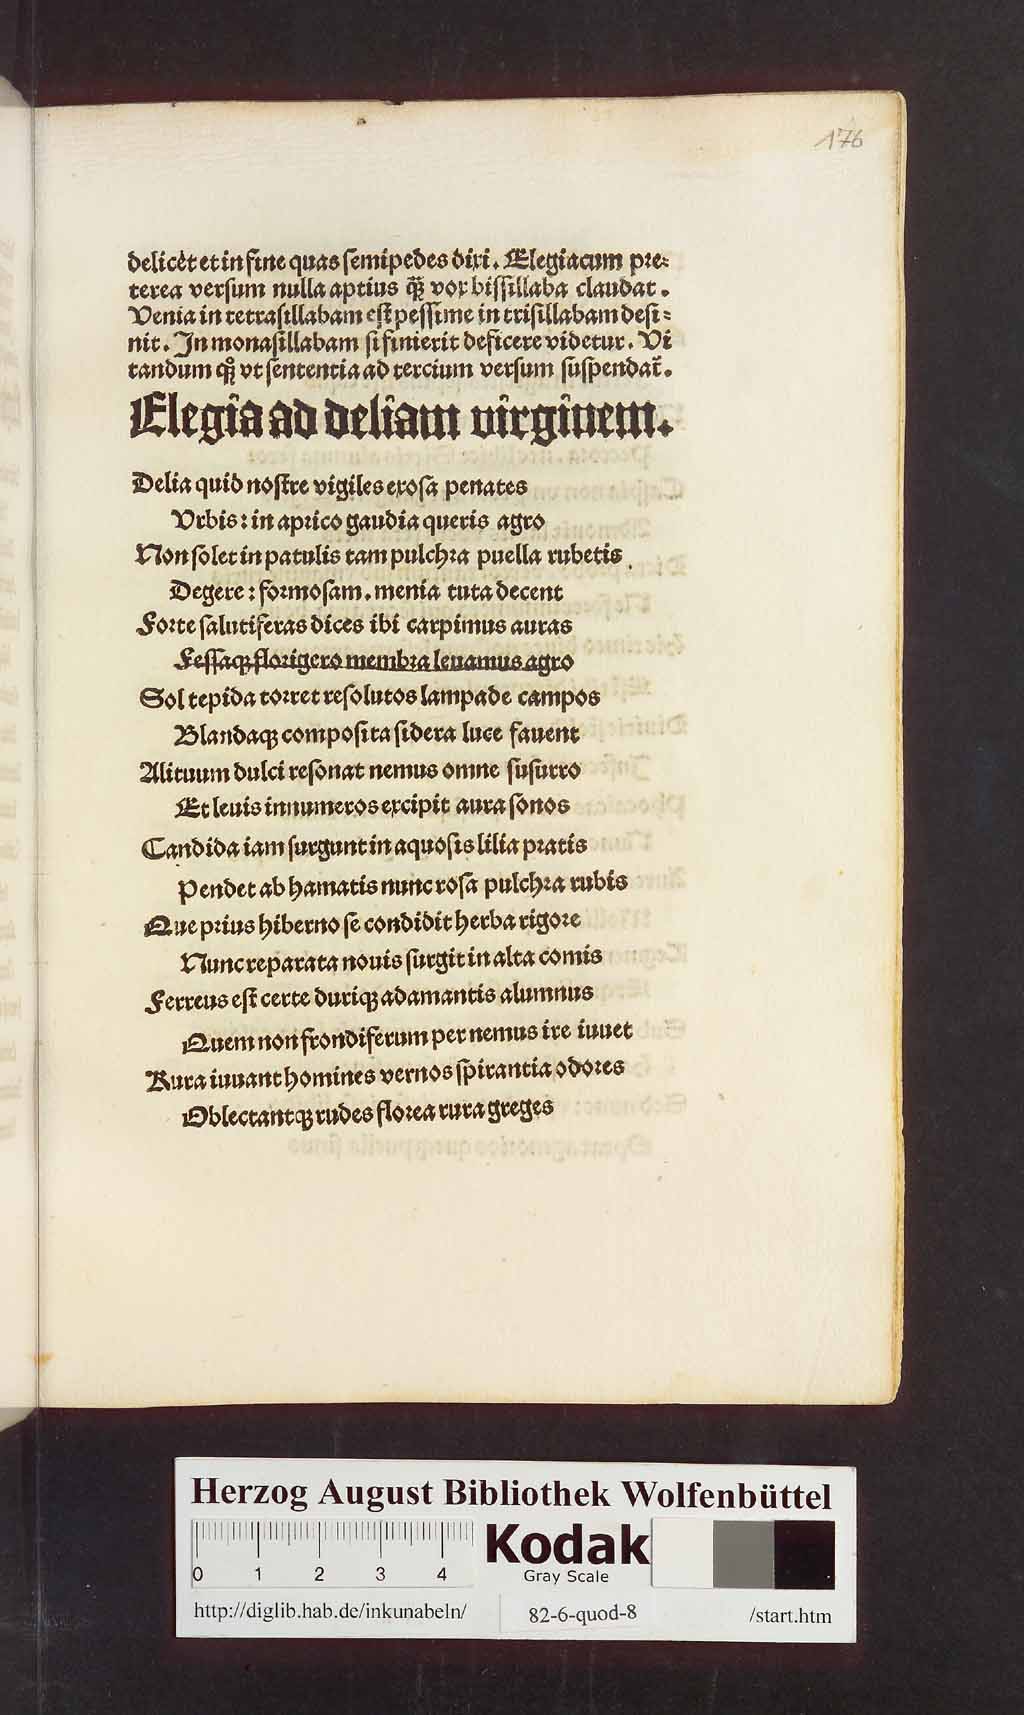 176
delicet et in fine quas semipedes dixi. Elegiacum pre⸗
terea versum nulla aptius q̄ȝ vox bissillaba claudat.
Venia in tetrasillabam est pessime in trisillabam desi⸗
nit. In monasillabam si finierit deficere videtur. Vi
tandum qꝫ vt sententia ad tercium versum suspendat̄.
Elegia ad deliam virginem.
Delia quid nostre vigiles exosa penates
Vrbis: in aprico gaudia queris agro
Non solet in patulis tam pulchra puella rubetis
Degere: formosam. menia tuta decent
Forte salutiferas dices ibi carpimus auras
Fessaqꝫ florigero membra leuamus agro
Sol tepida torret resolutos lampade campos
Blandaqꝫ composita sidera luce fauent
Alituum dulci resonat nemus omne susurro
Et leuis innumeros excipit aura sonos
Candida iam surgunt in aquosis lilia pratis
Pendet ab hamatis nunc rosa pulchra rubis
Que prius hiberno se condidit herba rigore
Nunc reparata nouis surgit in alta comis
Ferreus est certe duriqꝫ adamantis alumnus
Quem non frondiferum per nemus ire iuuet
Rura iuuant homines vernos spirantia odores
Oblectantqꝫ rudes florea rura greges
Herzog August Bibliothek Wolfenbüttel
0 1 2 3 4
Kodak
Gray Scale
http://diglib.hab.de/inkunabeln/ 82-6-quod-8 /start.htm